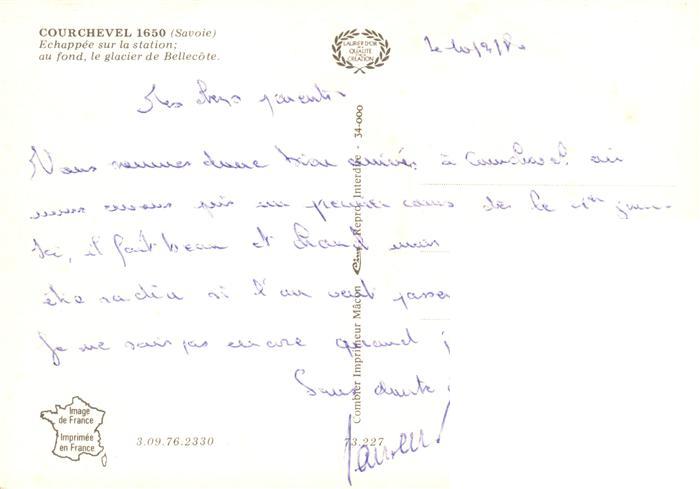 COURCHEVEL 1650 (Savoie)
Echappée sur la station;
au fond, le glacier de Bellecôte.
LAURIER D'OR
DE LA
QUALITÉ
CRÉATION
Le 10/2/80
Mes chers parents
Nous sommes donc bien arrivés à Courchevel où
nous avons pris un premier cours dès le 1er jour.
Ici, il fait beau et chaud mais
être radin si l'on veut passer
Je ne sais pas encore quand j
Sans doute
34-000
Reprod. Interdite
Cim
Combier Imprimeur Mâcon
Image
de France
Imprimée
en France
3.09.76.2330
73.227